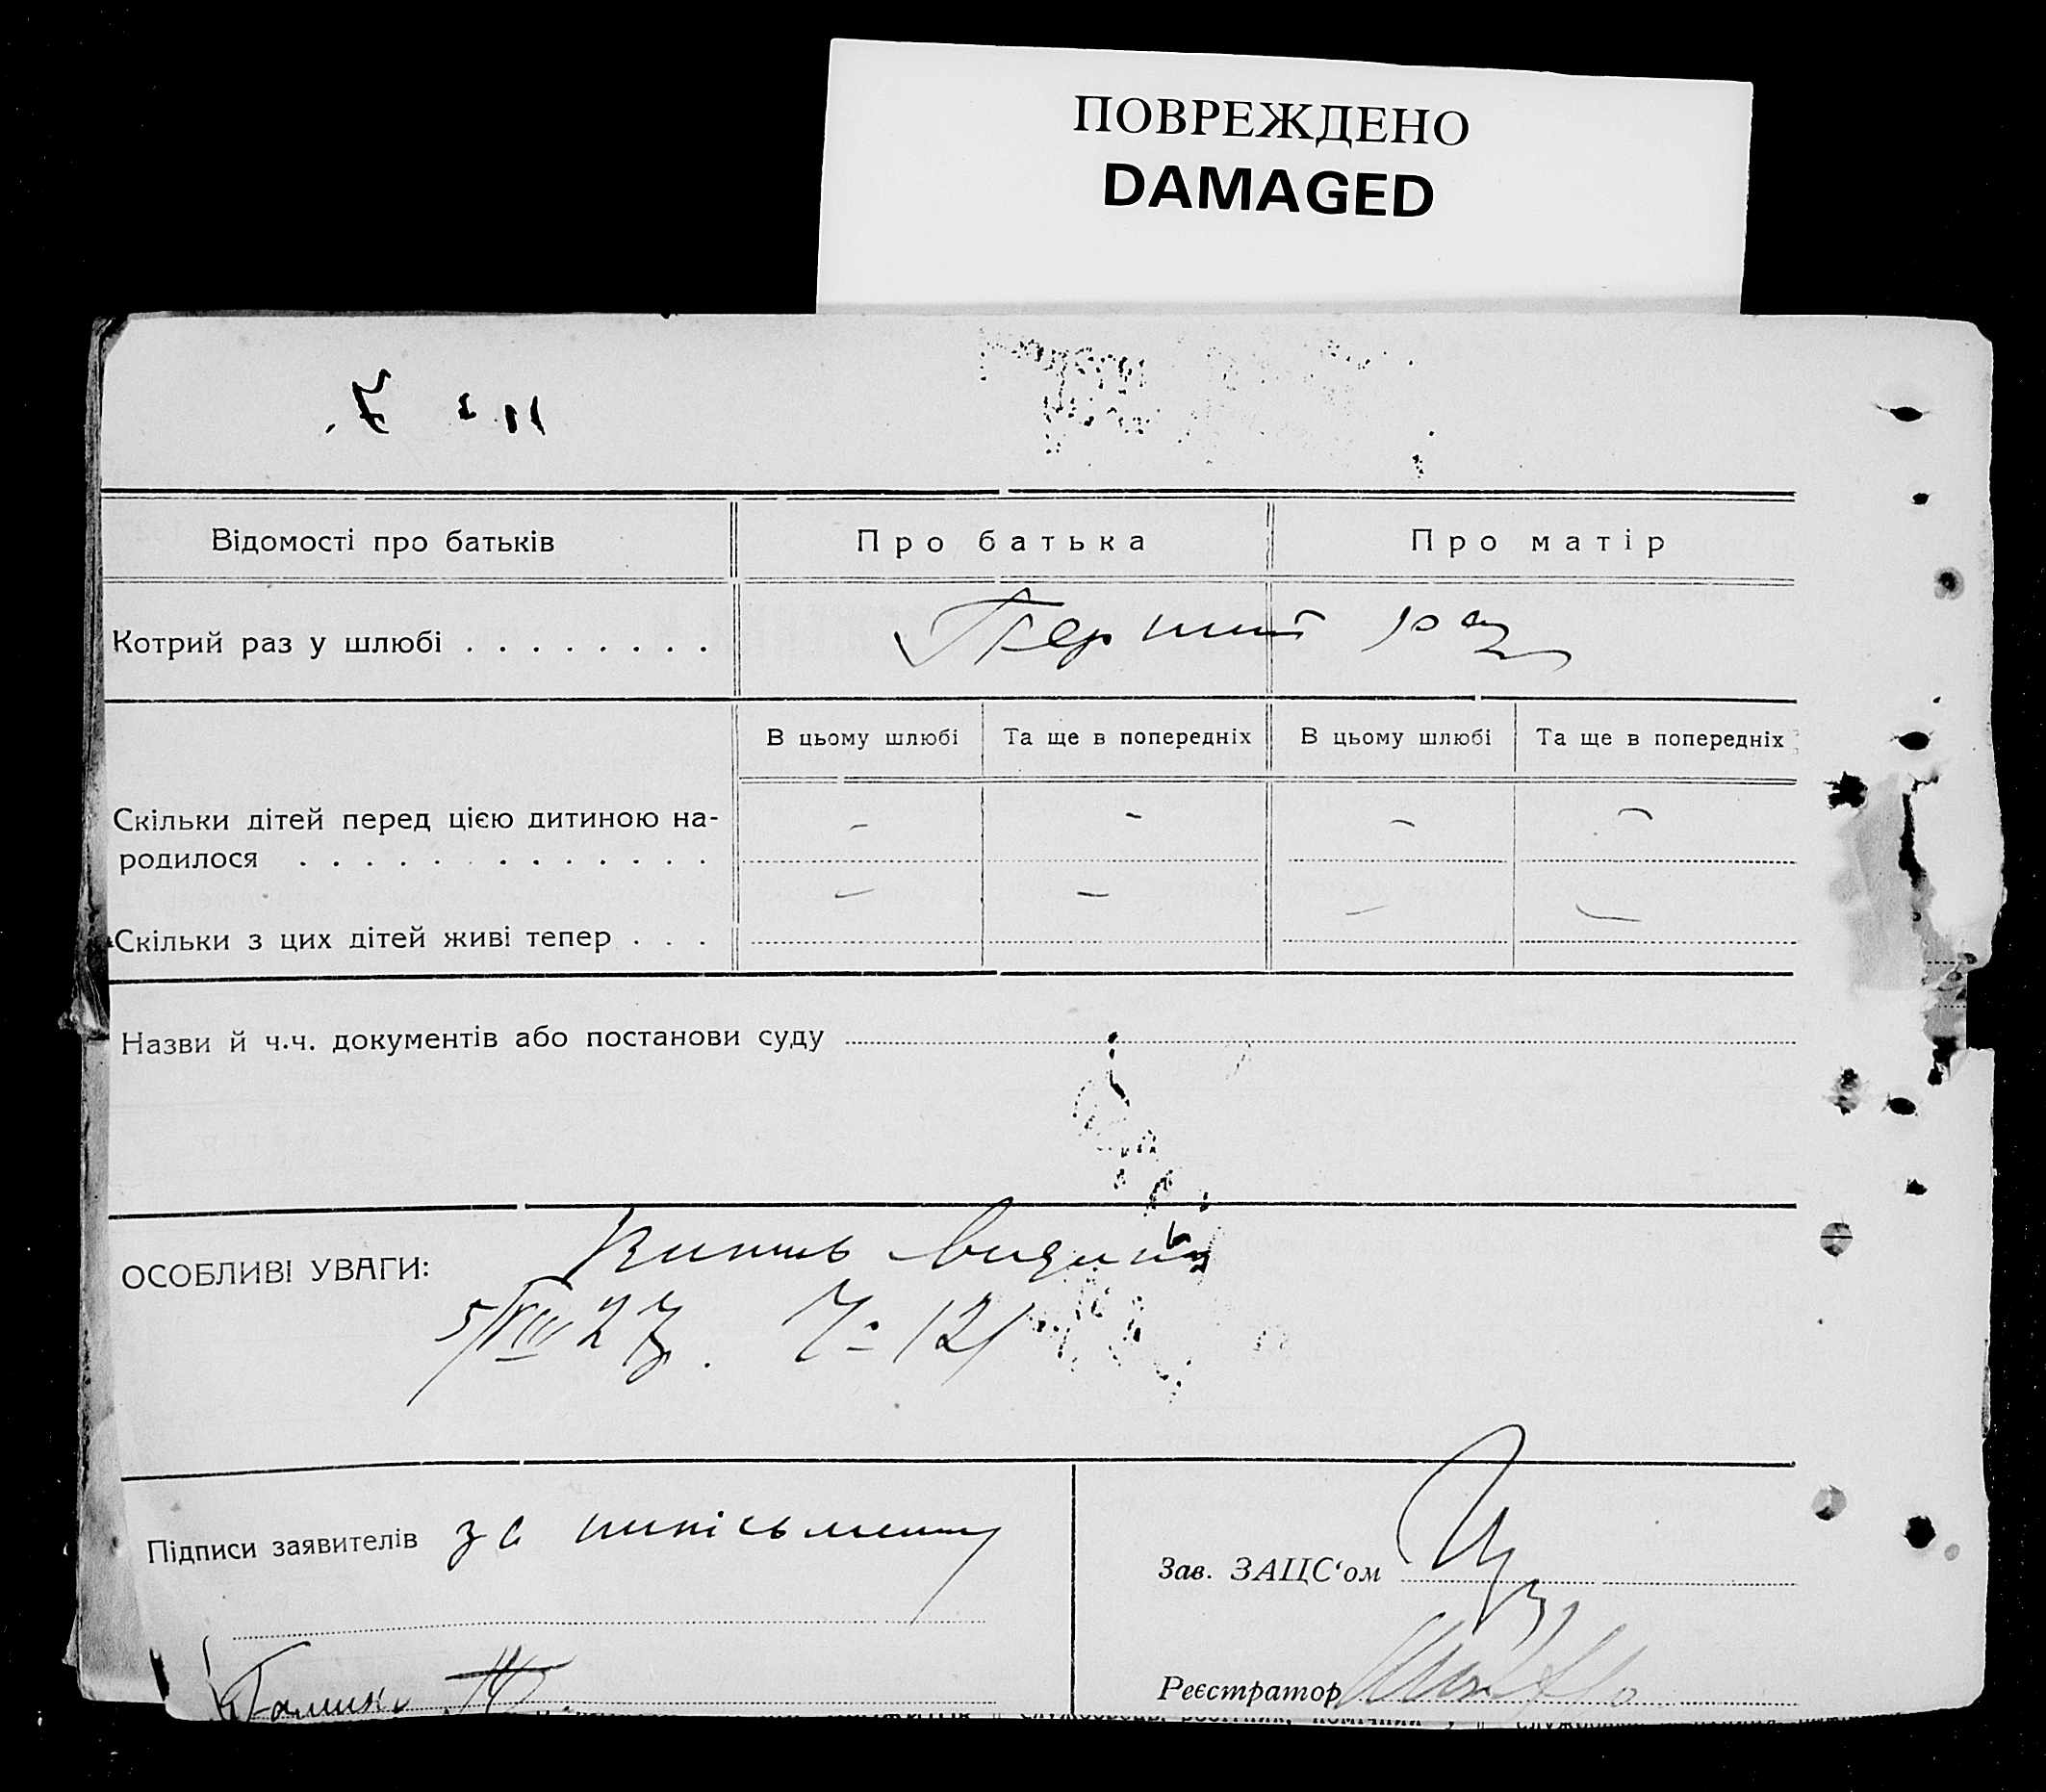 ПОВРЕЖДЕНО
DAMAGED
Відомості про батьків
Про батька
Про матір
Котрий раз у шлюбі . . . . . . . .
Перший раз
В цьому шлюбі
Та ще в попередніх
В цьому шлюбі
Та ще в попередніх
Скільки дітей перед цією дитиною на-
родилося . . . . . . . . . . . . .
- - - -
Скільки з цих дітей живі тепер . . .
- - - -
Назви й ч.ч. документів або постанови суду
ОСОБЛИВІ УВАГИ:
5/VIII 27. № 121
Підписи заявителів за
Зав. ЗАЦС‘ом
Реєстратор